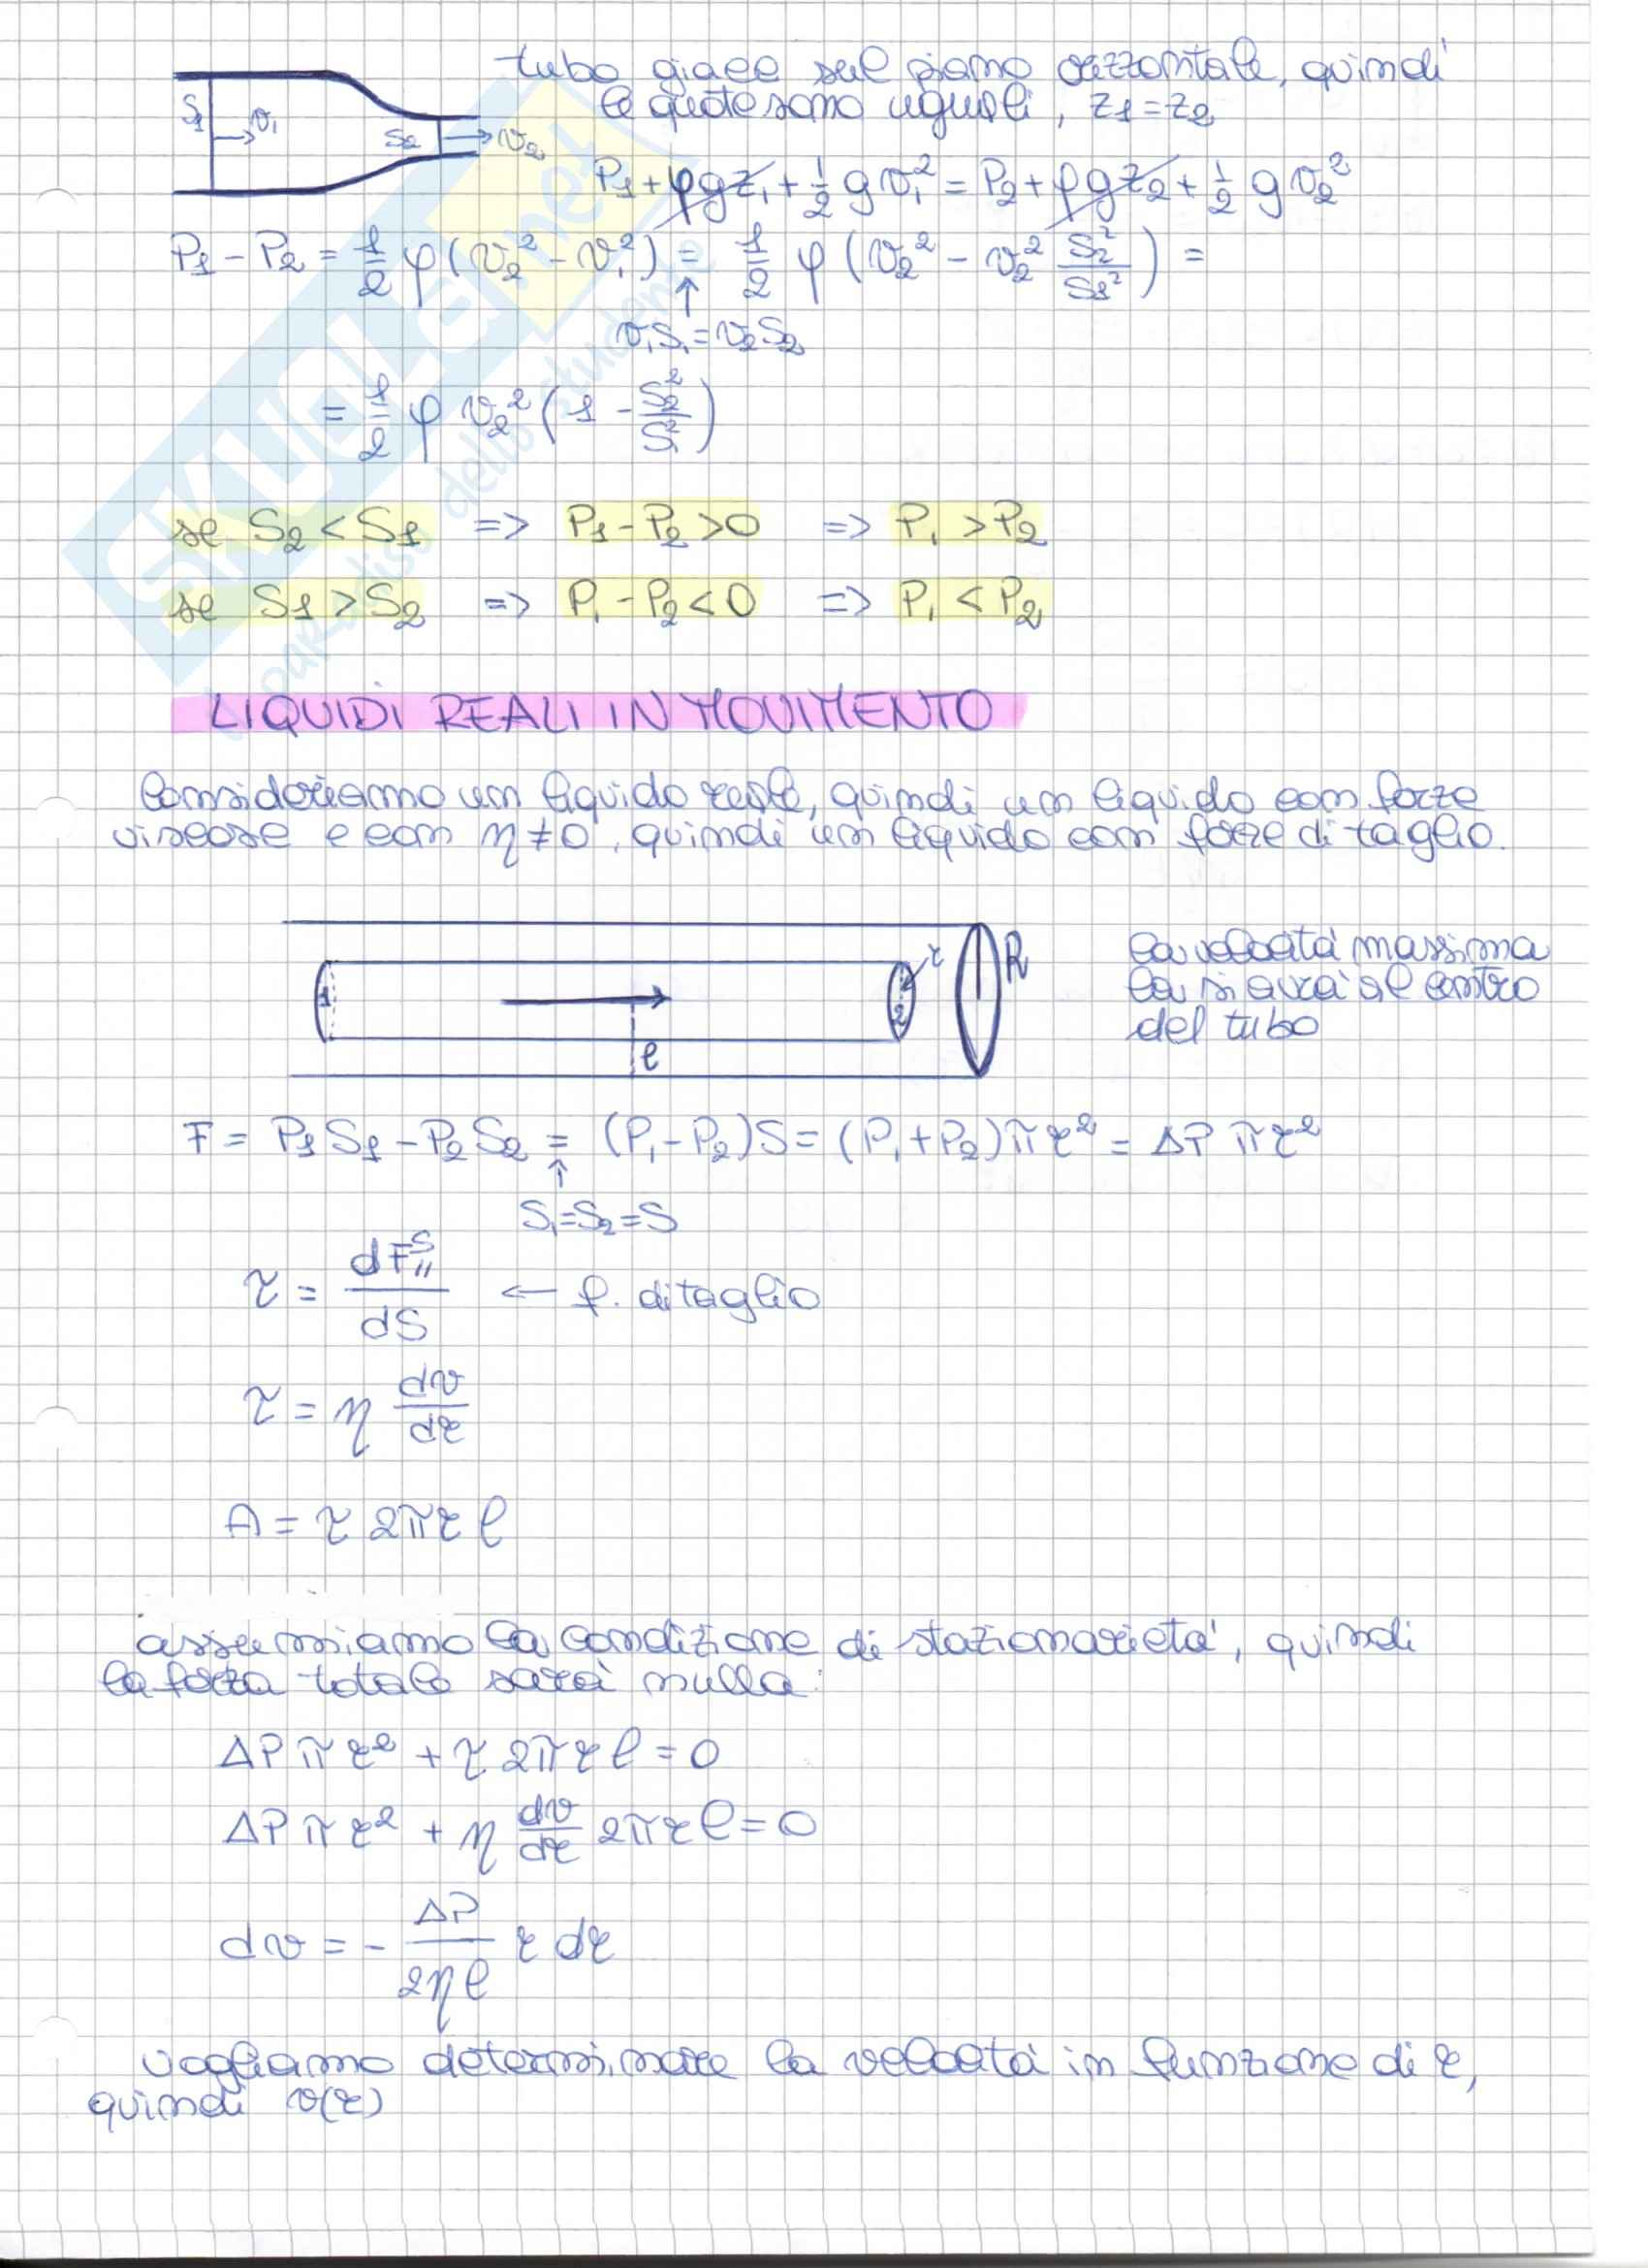 tubo giace sul piano orizzontale, quindi
le quote sono uguali, z1 = z2
S1 v1 S2 v2
P1 + φgz1 + 1/2 g v1² = P2 + φgz2 + 1/2 g v2²
P1 - P2 = 1/2 φ (v2² - v1²) = 1/2 φ (v2² - v2² S2²/S1²) =
↑
v1S1 = v2S2
= 1/2 φ v2² (1 - S2²/S1²)
se S2 < S1 => P1 - P2 > 0 => P1 > P2
se S1 > S2 => P1 - P2 < 0 => P1 < P2
SKUOLA.net
il paradiso dello studente
LIQUIDI REALI IN MOVIMENTO
Consideriamo un liquido reale, quindi un liquido con forze
viscose e con η≠0, quindi un liquido con forze di taglio.
1 l 2 r R
la velocità massima
la si avrà al centro
del tubo
F = P1 S1 - P2 S2 = (P1 - P2) S = (P1 + P2) π r² = ΔP π r²
↑
S1=S2=S
τ = dF∥ˢ/dS ← f. di taglio
τ = η dv/dr
A = τ 2π r l
assumiamo la condizione di stazionarietà, quindi
la forza totale sarà nulla:
ΔP π r² + τ 2π r l = 0
ΔP π r² + η dv/dr 2π r l = 0
dv = - ΔP/2ηl r dr
vogliamo determinare la velocità in funzione di r,
quindi v(r)